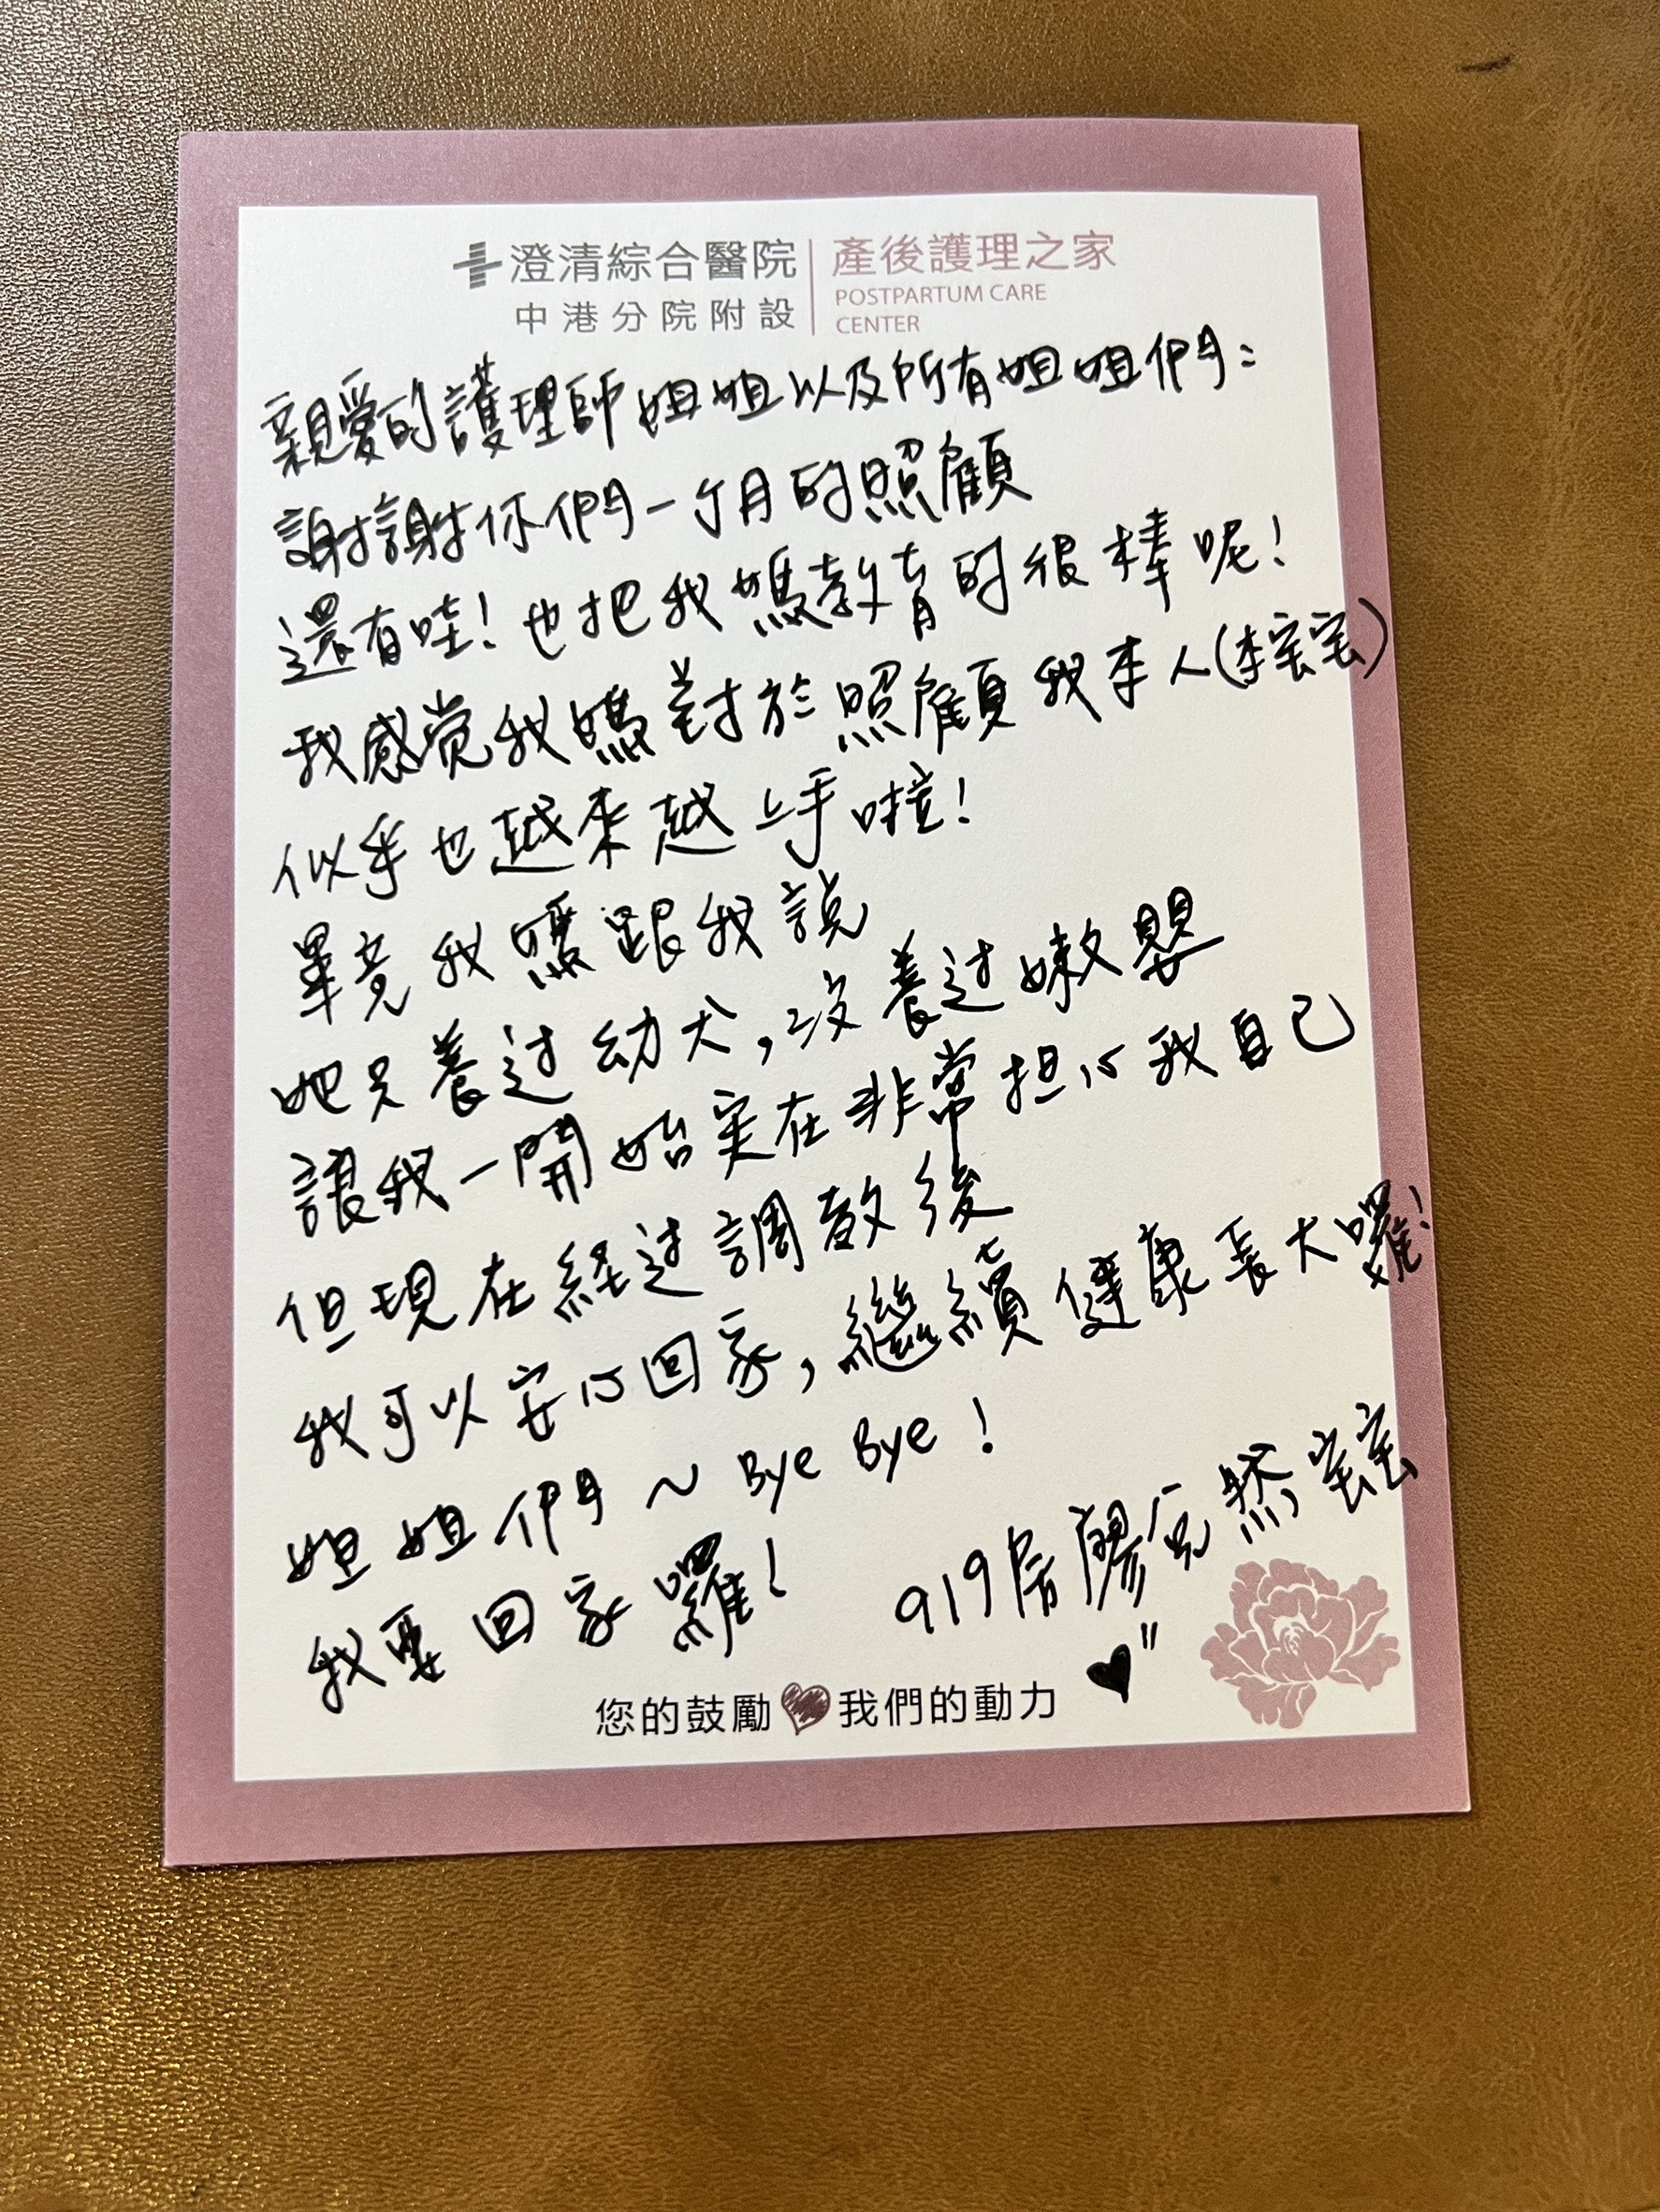 澄清綜合醫院
中港分院附設
產後護理之家
POSTPARTUM CARE
CENTER
親愛的護理師姐姐以及所有姐姐們：
謝謝你們一个月的照顧
還有哇！也把我媽教育的很棒呢！
我感觉我媽對於照顧我本人(本宝宝)
似乎也越來越上手啦！
畢竟我媽跟我說
她只養过幼犬，没養过嫩嬰
讓我一開始实在非常担心我自己
但現在経过調教後
我可以安心回家，繼續健康長大囉！
姐姐們～Bye Bye！
我要回家囉！
919房廖宝宝
您的鼓勵 我們的動力